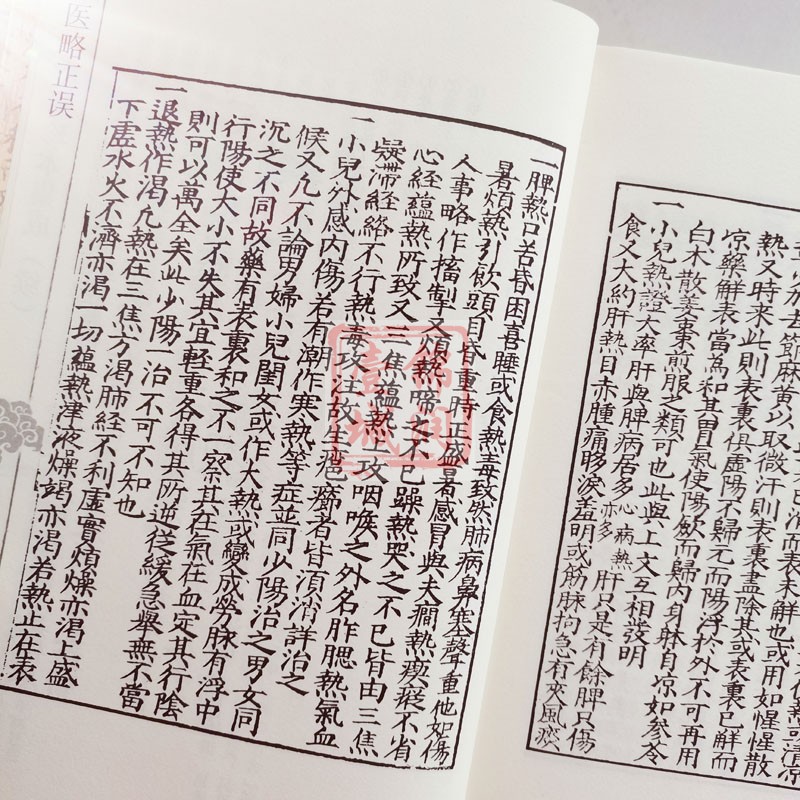 在熱可清涼
而表未解也或用如惺惺散
分加去節麻黃以取微汗則表裏盡除其或表裏已解而
熱又時來此則表裏俱虛陽不歸元而陽浮於外不可再用
凉藥解表當為和其胃氣使陽歛而歸內身躰自凉如參苓
白木散姜棗煎服之類可也此與上文互相發明
一小兒熱證大率肝與脾病居多心病熱亦多肝只是有餘脾只傷
食又大約肝熱目赤腫痛眵淚羞明或筋脉拘急有夾風痰
一脾熱口苦昏困喜睡或食熱毒致然肺病鼻塞聲重他如傷
暑煩熱引飲頭目昏重時上盛暑感冒與夫癇熱瘈瘲不省
人事略作搐製又煩熱啼之不已躁熱哭之不已皆由三焦
心經蘊熱所致又三焦蘊熱上攻咽喉之外名胙腮熱氣血
疑滯經絡不行熱毒攻注故生疤癤者皆湏消詳治之
一小兒外感內傷若有潮作寒熱等症並同少陽治之男女同
候又凢不論男婦小兒閨女或作大熱或變成勞脉有浮中
沉之不同故藥有表裏和之不一察其在氣在血定其行陰
行陽使大小不失其宜輕重各得其所逆從緩急舉無不當
則可以萬全矣此少陽一治不可不知也
一退熱作渴凢熱在三焦方渴肺經不利虛實煩燥亦渴上盛
下虛水火不濟亦渴一切蘊熱津液燥竭亦渴若熱止在表
医略正误